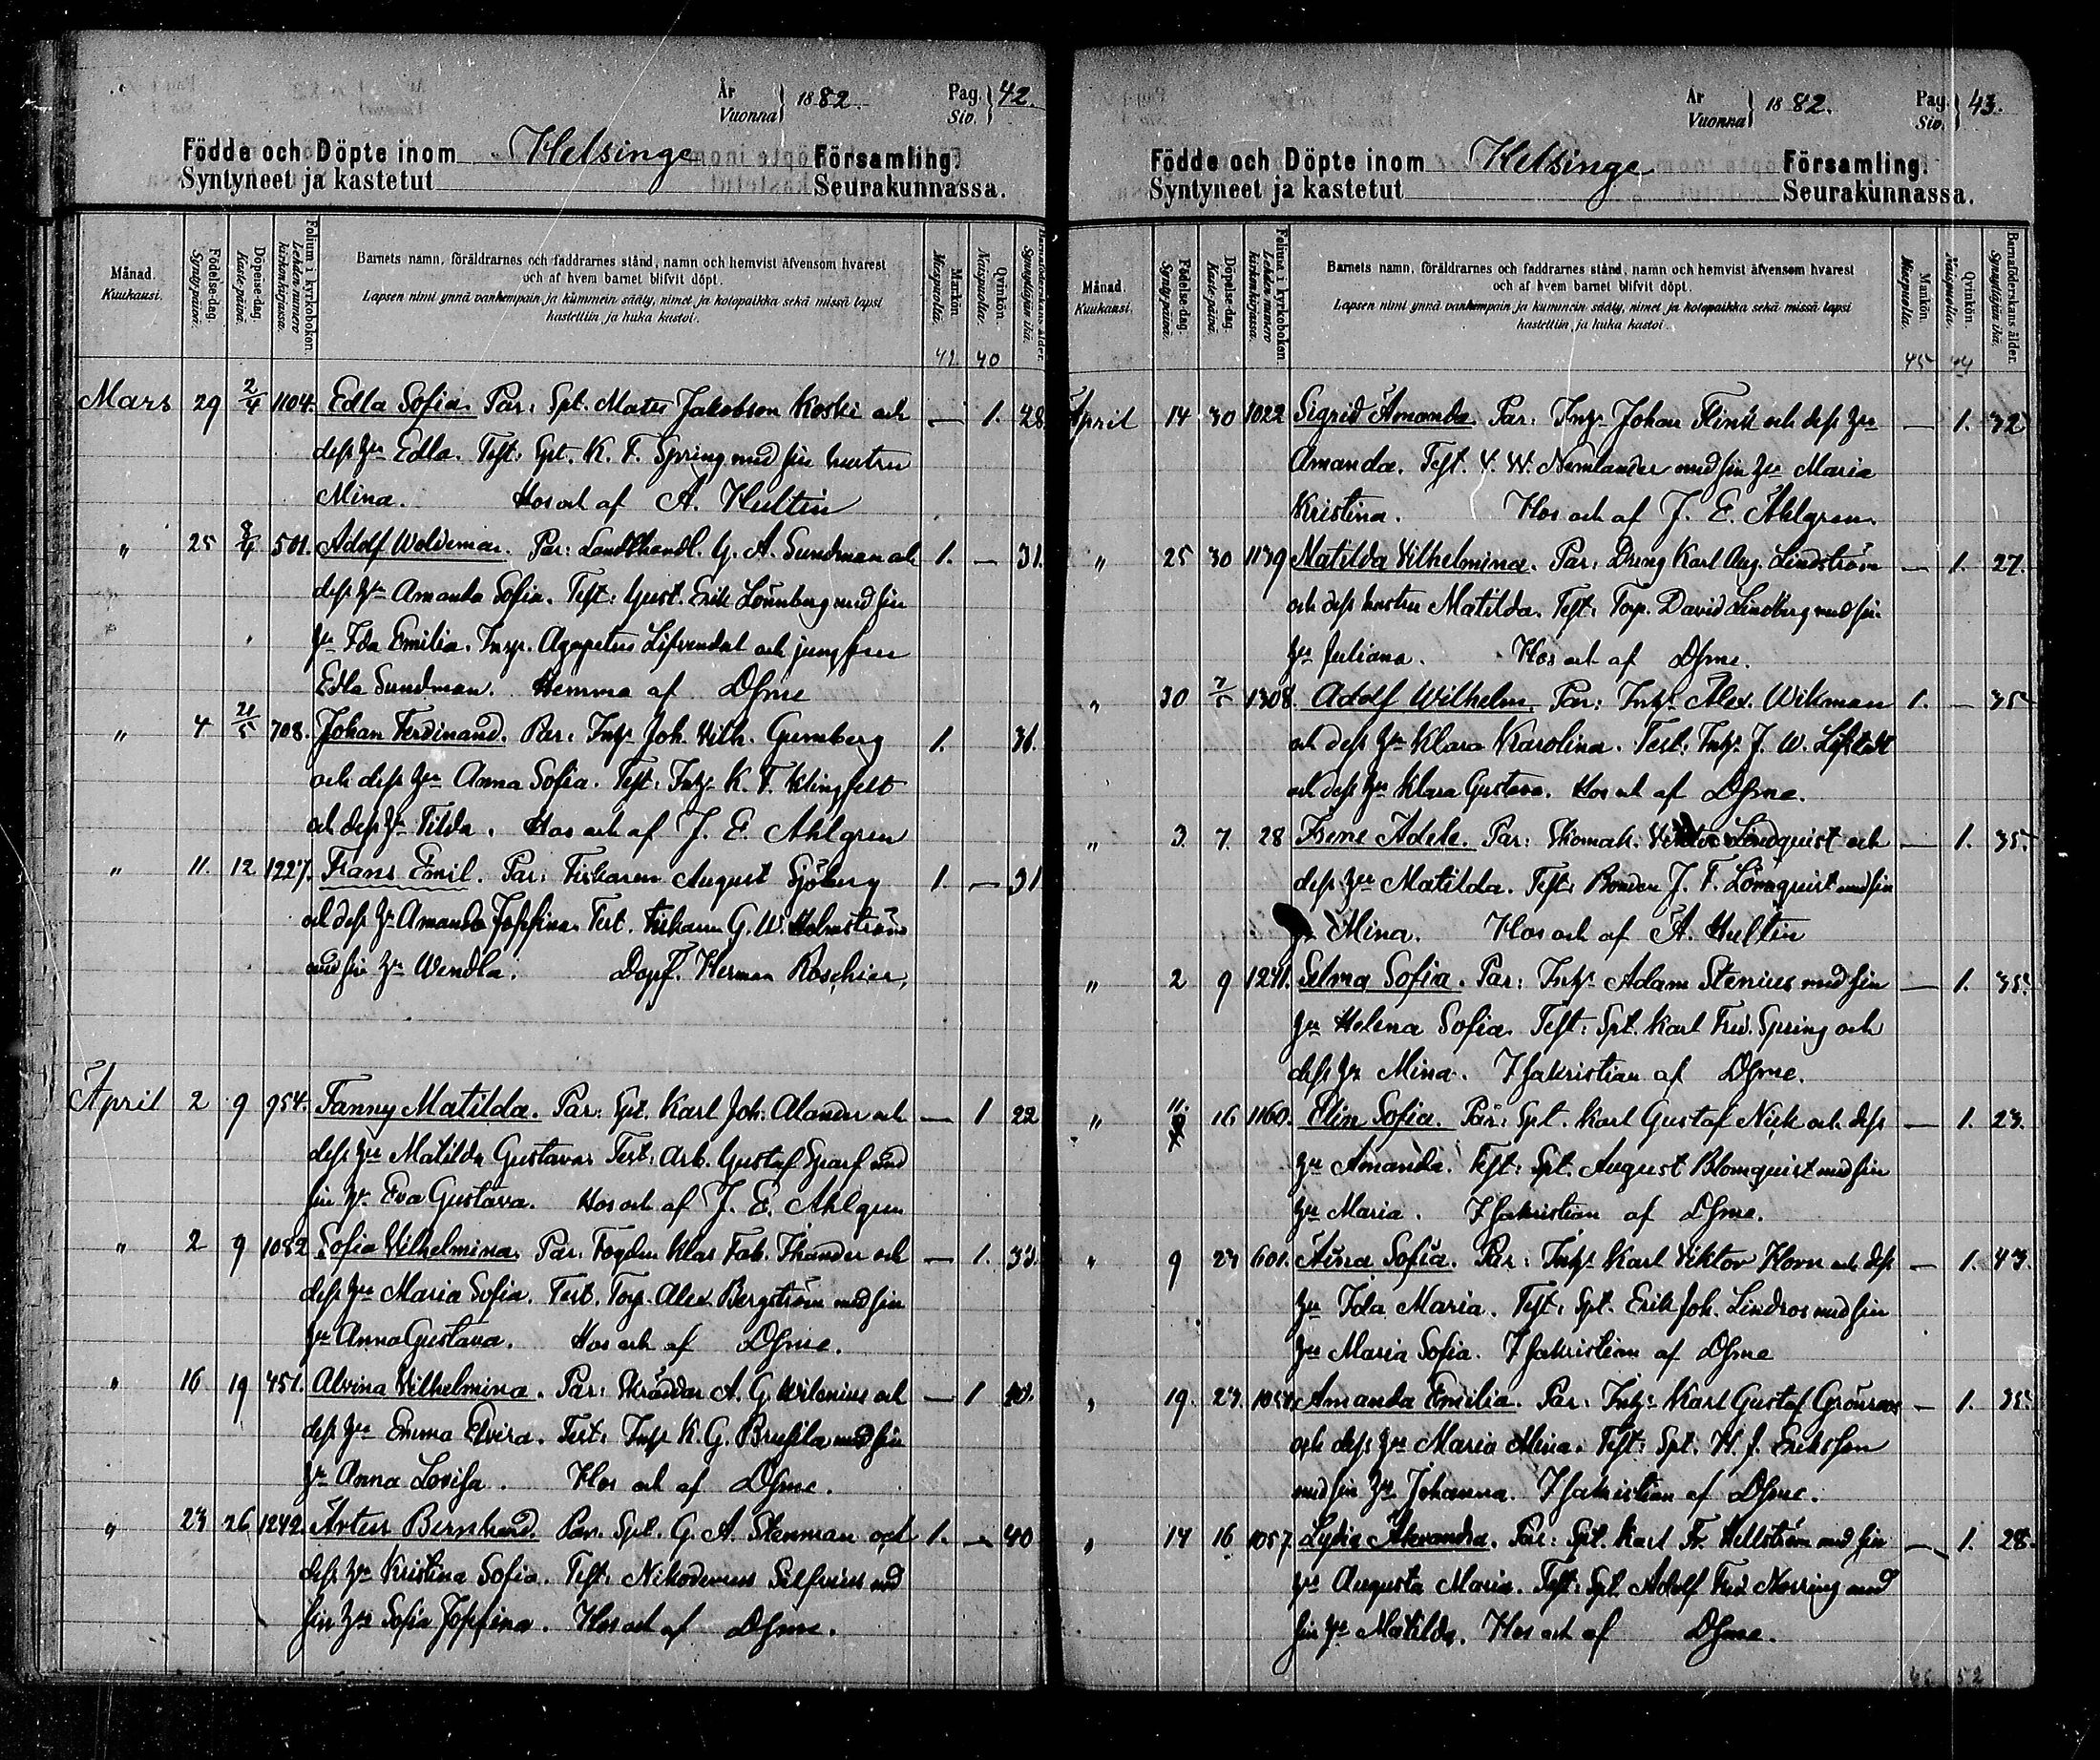 År
Vuonna } 1882
Pag.
Siv. } 42.
Födde och Döpte inom Helsinge Församling.
Syntyneet ja kastetut Seurakunnassa.
Månad.
Kuukausi.
Födelse-dag.
Synty-päivä.
Döpelse-dag.
Kaste-päivä.
Folium i kyrkoboken.
Lehden numero kirkonkirjassa.
Barnets namn, föräldrarnes och faddrarnes stånd, namn och hemvist äfvensom hvarest
och af hvem barnet blifvit döpt.
Lapsen nimi ynnä vanhempain ja kummein sääty, nimet ja kotopaikka sekä missä lapsi
kastettiin ja kuka kastoi.
Mankön.
Miespuolia.
Qvinkön.
Naispuolia.
Barnaföderskans ålder.
Synnyttäjän ikä.
42. 40
Mars 29 2/4 1104. Edla Sofia. Par: Spt. Mats Jakobson Koski och — 1. 28
dess hu Edla. Test: Spt. K. F. Spring med sin hustru
Mina. Hos och af A. Hultin
" 25 8/4 501. Adolf Woldemar. Par: Landthandl. G. A. Sundman och 1. — 31.
dess hu Amanda Sofia. Test: Gust. Erik Lönnberg med sin
hu Ida Emilia. Insp. Agapetus Lifvendal och jungfru
Edla Sundman. Hemma af Dsme
" 4 21/5 708. Johan Ferdinand. Par: Inhs Joh. Vilh. Grmberg 1. 31.
och dess hu Anna Sofia. Test: Inhs K. F. Klingfelt
och dess hu Tilda. Hos och af J. E. Ahlgren
" 11. 12 1227. Frans Emil. Par: Fiskaren August Sjöberg 1. — 31
och dess hu Amanda Josefina. Test. Fiskaren G. W. Holmström
med sin hu Wendla. Dopf. Herman Roschier.
April 2 9 954. Fanny Matilda. Par: Spt. Karl Joh. Alander och — 1 22
dess hu Matilda Gustava. Test: Arb. Gustaf Sparf med
sin hu Eva Gustava. Hos och af J. E. Ahlgren
" 2 9 1082 Sofia Vilhelmina. Par. Fogden Klas Fab. Ikander och — 1. 33.
dess hu Maria Sofia. Test. Torp. Alex. Bergström med sin
hu Anna Gustava. Hos och af Dsme.
" 16 19 451. Alvina Vilhelmina. Par: Skräddar A. G. Wilenius och — 1
dess hu Emma Elvira. Test: Inhs K. G. Brusila med sin
hu Anna Lovisa. Hos och af Dsme.
" 23 26 1242. Artur Bernhard. Par. Spt. G. A. Stenman och 1. — 40
dess hu Kristina Sofia. Test: Nikodemus Silfvius med
sin hu Sofia Josefina. Hos och af Dsme.
År
Vuonna } 1882.
Pag.
Siv. } 43.
Födde och Döpte inom Helsinge Församling.
Syntyneet ja kastetut Seurakunnassa.
Månad.
Kuukausi.
Födelse-dag.
Synty-päivä.
Döpelse-dag.
Kaste-päivä.
Folium i kyrkoboken.
Lehden numero kirkonkirjassa.
Barnets namn, föräldrarnes och faddrarnes stånd, namn och hemvist äfvensom hvarest
och af hvem barnet blifvit döpt.
Lapsen nimi ynnä vanhempain ja kummein sääty, nimet ja kotopaikka sekä missä lapsi
kastettiin ja kuka kastoi.
Mankön.
Miespuolia.
Qvinkön.
Naispuolia.
Barnaföderskans ålder.
Synnyttäjän ikä.
45 44
April 14 30 1022 Sigrid Amanda. Par: Inhs Johan Flink och dess hu — 1. 32
Amanda. Test. V. W. Nemlander med sin hu Maria
Kristina. Hos och af J. E. Ahlgren.
" 25 30 1139 Matilda Vilhelmina. Par: Dreng Karl Aug. Lindström — 1. 27.
och dess hustru Matilda. Test: Torp. David Lindberg med sin
hu Juliana. Hos och af Dsme.
" 30 7/5 1308. Adolf Wilhelm. Par: Inhs Alex. Wikman 1. — 35
och dess hu Klara Karolina. Test: Inhs J. W. Löfstedt
och dess hu Klara Gustava. Hos och af Dsme.
" 3. 7. 28 Irene Adele. Par: Skomak. Viktor Lindquist och — 1. 35.
dess hu Matilda. Test: Bonden J. F. Lönnquist med sin
hu Mina. Hos och af A. Hultin
" 2 9 1241. Selma Sofia. Par: Inhs Adam Stenius med sin — 1. 35.
hu Helena Sofia. Test: Spt. Karl Fred. Spring och
dess hu Mina. I sakristian af Dsme.
" 11. 16 1160. Elin Sofia. Par: Spt. Karl Gustaf Nick och dess — 1. 23.
hu Amanda. Test: Spt. August Blomquist med sin
hu Maria. I sakristian af Dsme.
" 9 23 601. Aina Sofia. Par: Inhs Karl Viktor Horn och dess — 1. 43.
hu Ida Maria. Test: Spt. Erik Joh. Lindros med sin
hu Maria Sofia. I sakristian af Dsme
" 19. 23. 1050. Amanda Emilia. Par: Inhs Karl Gustaf Grönroos — 1. 35.
och dess hu Maria Mina. Test: Spt. H. J. Eriksson
med sin hu Johanna. I sakristian af Dsme.
" 14 16 1057 Lydia Alexandra. Par: Spt. Karl Fr. Hellström med sin — 1. 28.
hu Augusta Maria. Test: Spt. Adolf Fred Norring med
sin hu Matilda. Hos och af Dsme.
46 52